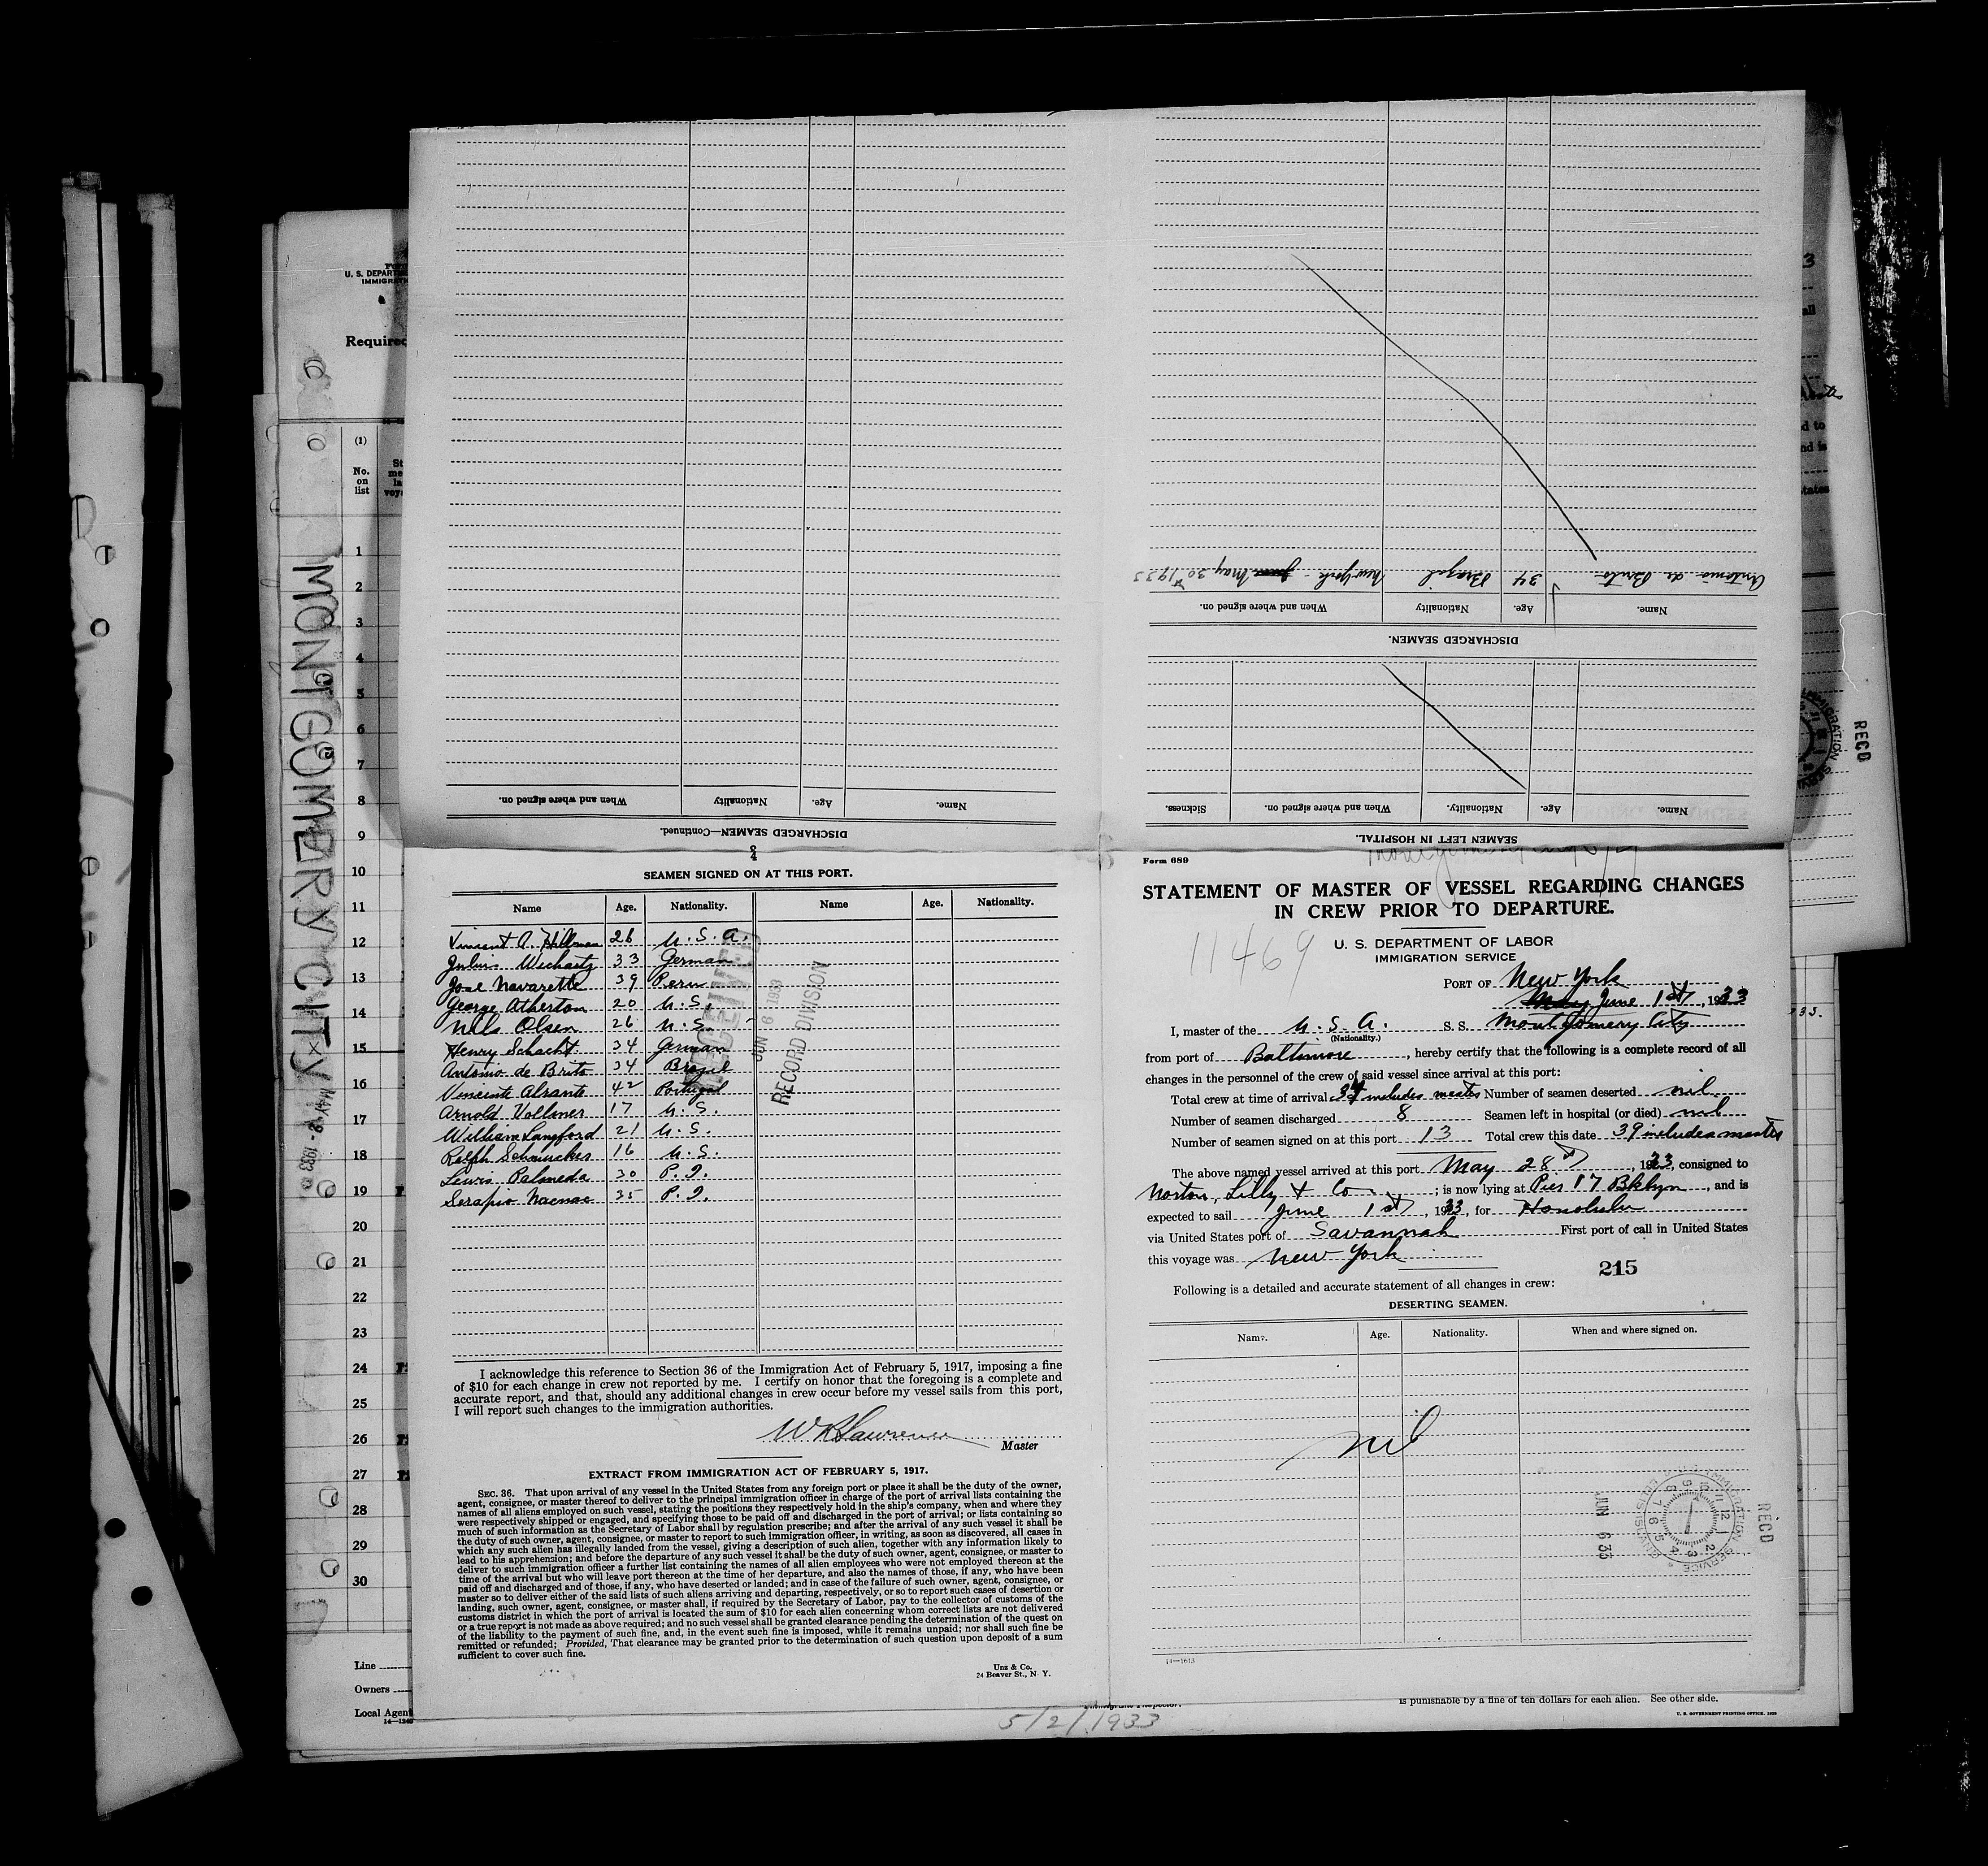 SEAMEN SIGNED ON AT THIS PORT.
Name Age. Nationality. Name Age. Nationality.
Vincent A. Hillman 26 U.S.A.
Julius Wechartz 33 German
José Navarette 39 Peru
George Atherton 20 U.S.
Nils Olsen 26 U.S.
Henry Schacht 34 German
Antonio de Brito 34 Brazil
Vincente Alxante 42 Portugal
Arnold Vollmer 17 U.S.
William Langford 21 U.S.
Ralph Schumacher 16 U.S.
Lewis Palmeda 30 P.I.
Serapio Nacnac 35 P.I.
RECEIVED
JUN 6 1933
RECORD DIVISION
I acknowledge this reference to Section 36 of the Immigration Act of February 5, 1917, imposing a fine
of $10 for each change in crew not reported by me. I certify on honor that the foregoing is a complete and
accurate report, and that, should any additional changes in crew occur before my vessel sails from this port,
I will report such changes to the immigration authorities.
W R Lawrence
Master
EXTRACT FROM IMMIGRATION ACT OF FEBRUARY 5, 1917.
SEC. 36. That upon arrival of any vessel in the United States from any foreign port or place it shall be the duty of the owner,
agent, consignee, or master thereof to deliver to the principal immigration officer in charge of the port of arrival lists containing the
names of all aliens employed on such vessel, stating the positions they respectively hold in the ship's company, when and where they
were respectively shipped or engaged, and specifying those to be paid off and discharged in the port of arrival; or lists containing so
much of such information as the Secretary of Labor shall by regulation prescribe; and after the arrival of any such vessel it shall be
the duty of such owner, agent, consignee, or master to report to such immigration officer, in writing, as soon as discovered, all cases in
which any such alien has illegally landed from the vessel, giving a description of such alien, together with any information likely to
lead to his apprehension; and before the departure of any such vessel it shall be the duty of such owner, agent, consignee, or master to
deliver to such immigration officer a further list containing the names of all alien employees who were not employed thereon at the
time of the arrival but who will leave port thereon at the time of her departure, and also the names of those, if any, who have been
paid off and discharged and of those, if any, who have deserted or landed; and in case of the failure of such owner, agent, consignee, or
master so to deliver either of the said lists of such aliens arriving and departing, respectively, or so to report such cases of desertion or
landing, such owner, agent, consignee, or master shall, if required by the Secretary of Labor, pay to the collector of customs of the
customs district in which the port of arrival is located the sum of $10 for each alien concerning whom correct lists are not delivered
or a true report is not made as above required; and no such vessel shall be granted clearance pending the determination of the quest on
of the liability to the payment of such fine, and, in the event such fine is imposed, while it remains unpaid; nor shall such fine be
remitted or refunded; Provided, That clearance may be granted prior to the determination of such question upon deposit of a sum
sufficient to cover such fine.
Unz & Co.
24 Beaver St., N. Y.
Form 689
STATEMENT OF MASTER OF VESSEL REGARDING CHANGES
IN CREW PRIOR TO DEPARTURE.
11469
U. S. DEPARTMENT OF LABOR
IMMIGRATION SERVICE
PORT OF New York
May June 1st, 1933
I, master of the U.S.A. S. S. Montgomery City
(Nationality.)
from port of Baltimore, hereby certify that the following is a complete record of all
changes in the personnel of the crew of said vessel since arrival at this port:
Total crew at time of arrival 34 includes master Number of seamen deserted nil
Number of seamen discharged 8 Seamen left in hospital (or died) nil
Number of seamen signed on at this port 13 Total crew this date 39 includes master
The above named vessel arrived at this port May 28th, 1933, consigned to
Norton, Lilly & Co.; is now lying at Pier 17 Bklyn, and is
expected to sail June 1st, 1933, for Honolulu
via United States port of Savannah First port of call in United States
this voyage was New York
215
Following is a detailed and accurate statement of all changes in crew:
DESERTING SEAMEN.
Name. Age. Nationality. When and where signed on.
nil
IMMIGRATION SERVICE
JUN 6 33
RECD
14—1633
SEAMEN LEFT IN HOSPITAL.
Name. Age. Nationality. When and where signed on. Sickness.
DISCHARGED SEAMEN.
Name. Age. Nationality When and where signed on.
Antonio de Brito 34 Brazil New York - June May 30th 1933
DISCHARGED SEAMEN—Continued.
Name. Age. Nationality When and where signed on.
MONTGOMERY CITY
MAY 2 - 1933
U. S. DEPART
IMMIGRA
Required
(1)
No.
on
list
1
2
3
4
5
6
7
8
9
10
11
12
13
14
15
16
17
18
19
20
21
22
23
24
25
26
27
28
29
30
Line
Owners
Local Agent
5/2/1933
is punishable by a fine of ten dollars for each alien. See other side.
U. S. GOVERNMENT PRINTING OFFICE
RECD